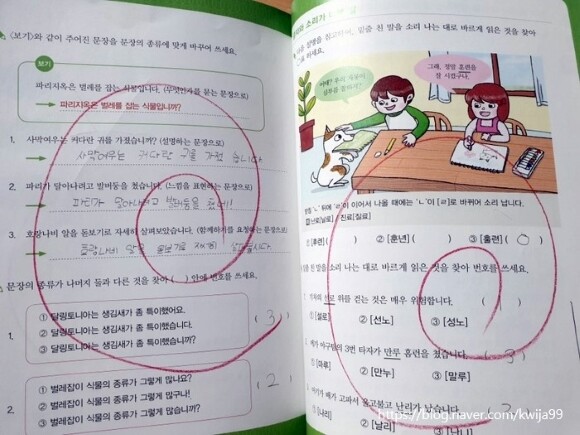 <보기>와 같이 주어진 문장을 문장의 종류에 맞게 바꾸어 쓰세요.
보기
파리지옥은 벌레를 잡는 식물입니다. (무엇인가를 묻는 문장으로)
파리지옥은 벌레를 잡는 식물입니까?
1. 사막여우는 커다란 귀를 가졌습니까? (설명하는 문장으로)
사막여우는 커다란 귀를 가졌습니다
2. 파리가 달아나려고 발버둥을 쳤습니다. (느낌을 표현하는 문장으로)
파리가 달아나려고 발버둥을
3. 호랑나비 알을 돋보기로 자세히 살펴보았습니다. (함께하기를 요청하는 문장으로)
호랑나비 알을 돋보기로 자세히
문장의 종류가 나머지 둘과 다른 것을 찾아 ( ) 안에 번호를 쓰세요.
1.
① 달링토니아는 생김새가 좀 특이했어요.
② 달링토니아는 생김새가 좀 특이했습니다.
③ 달링토니아는 생김새가 좀 특이했습니까?
( 3 )
2.
① 벌레잡이 식물의 종류가 그렇게 많나요?
② 벌레잡이 식물의 종류가 그렇게 많구나!
③ 벌레잡이 식물의 종류가 그렇게 많습니까?
( 2 )
소리가
밑줄 친 말을 소리 나는 대로 바르게 읽은 것을 찾아
쓰세요.
어때? 우리 강아지
그래, 정말 훈련을
잘 시켰구나.
'ㄴ' 뒤에 'ㄹ'이 이어서 나올 때에는 'ㄴ'이 [ㄹ]로 바뀌어 소리 납니다.
난로[날로] | 진료[질료]
① [훈련] ( ) ② [훈년] ( ) ③ [훌련] ( ○ )
친 말을 소리 나는 대로 바르게 읽은 것을 찾아 번호를 쓰세요.
위를 걷는 것은 매우 위험합니다. ( )
① [설로] ② [선노] ③ [성노]
야구팀의 3번 타자가 만루 훈련을 쳤습니다. ( 3 )
① [마루] ② [만누] ③ [말루]
배가 고파서 울고불고 난리가 났습니다. 3
① [나리] ② [날리] ③ [난니]
https://blog.naver.com/kwija99